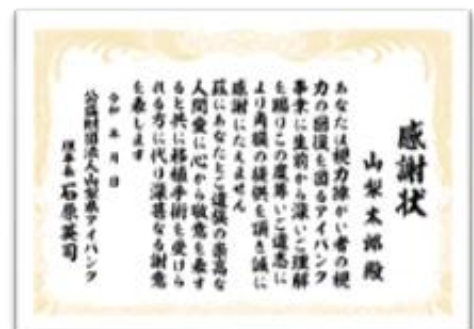 感謝状
山梨太郎殿
あなたは視力障がい者の視
力の回復を図るアイバンク
事業に生前から深いご理解
を賜りこの度尊いご遺志に
より両眼の提供を頂き誠に
感謝にたえません
茲にあなたとご遺族の崇高な
人間愛に心から敬意を表す
ると共に移植手術を受けら
れる方に代り深甚なる謝意
を表します
令和 年 月 日
公益財団法人山梨県アイバンク
理事長 石原英司